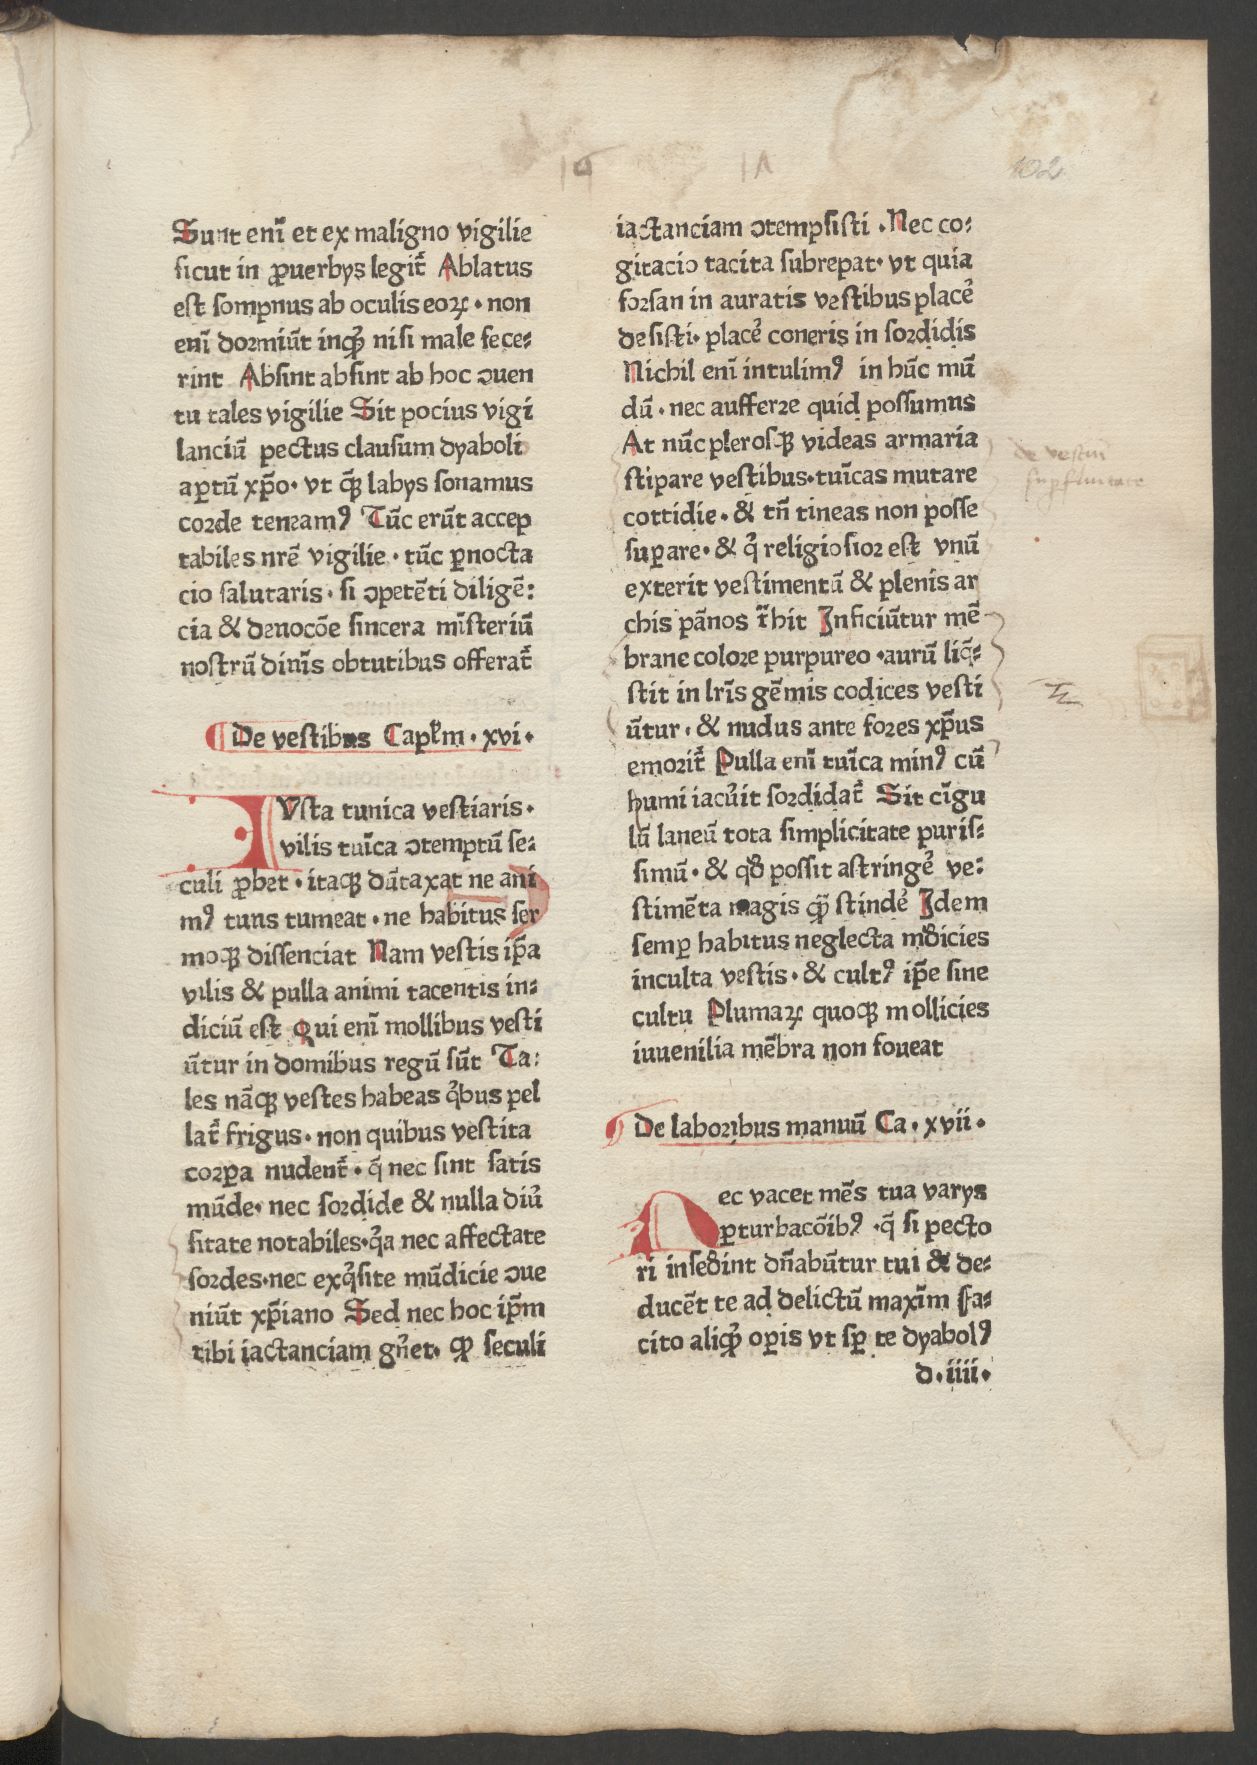 102
Sunt enī et ex maligno vigilie
sicut in ꝓuerbys legit᷑ Ablatus
est sompnus ab oculis eoꝝ · non
enī dormiūt inqͣ nisi male fece⸗
rint Absint absint ab hoc ↄuen
tu tales vigilie Sit pocius vigi
lanciū pectus clausum dyaboli
aꝑtū xp̄o · vt q̄ labys sonamus
corde teneamꝰ Tūc erūt accep
tabiles nr̄e vigilie · tūc ꝑnocta
cio salutaris · si ↄpetēti diligē⸗
cia & deuocōe sincera mīsteriū
nostrū diuīs obtutibus offerat᷑
De vestibus Capl̄m · xvi ·
IUsta tunica vestiaris ·
vilis tuīca ↄtemptū se⸗
culi ꝓbet · itaqꝫ dūtaxat ne ani
mꝰ tuus tumeat · ne habitus ser
moqꝫ dissenciat Nam vestis ip̄a
vilis & pulla animi tacentis in⸗
diciū est Qui enī mollibus vesti
ūtur in domibus regū sūt Ta⸗
les nāqꝫ vestes habeas qͥbus pel
lat᷑ frigus · non quibus vestita
corpa nudent᷑ · q̄ nec sint satis
mūde · nec sordide & nulla diuͥ
sitate notabiles · qͥa nec affectate
sordes · nec exqͥsite mūdicie ↄue
niūt xp̄iano Sed nec hoc ip̄m
tibi iactanciam gn̄et · ꝙ seculi
iactanciam ↄtempsisti · Nec co⸗
gitacio tacita subrepat · vt quia
forsan in auratis vestibus place᷑
desisti · place᷑ coneris in sordidis
Nichil enī intulimꝰ in hūc mū
dū · nec aufferre quid possumus
At nūc plerosqꝫ videas armaria
stipare vestibus · tuīcas mutare
cottidie · & tn̄ tineas non posse
suꝑare · & qͥ religiosior est vnū
exterit vestimentū & plenis ar
chis pānos tͣhit Inficiūtur mē
brane colore purpureo · aurū liq̄⸗
stit in lr̄is gēmis codices vesti
ūtur · & nudus ante fores xp̄us
emorit᷑ Pulla enī tuīca minꝰ cū
humi iacuͥit sordidat᷑ Sit cīgu
lū laneū tota simplicitate puris⸗
simū · & qđ possit astringe᷑ ve⸗
stimēta magis qͣ̄ stinde᷑ Idem
semꝑ habitus neglecta mūdicies
inculta vestis · & cultꝰ ip̄e sine
cultu Plumaꝝ quoqꝫ mollicies
iuuenilia mēbra non foueat
De laboribus manuū Ca · xvii ·
Nec vacet mēs tua varys
ꝑturbacōibꝰ · q̄ si pecto
ri insederint dn̄abūtur tui & de⸗
ducēt te ad delictū maxīm Fa⸗
cito aliqͥd oꝑis vt sꝑ te dyabolꝰ
d · iiii ·
de vestiū
suꝑfluitate